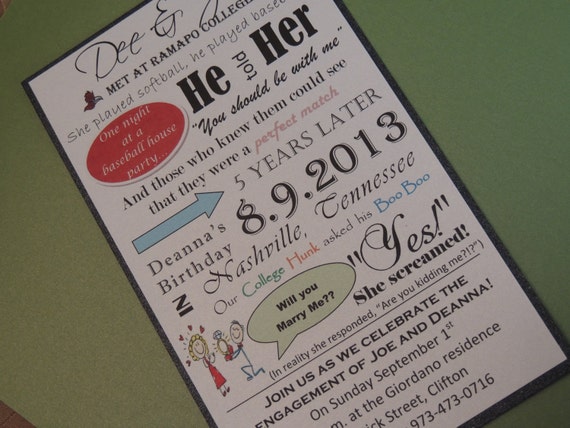 Dee &
MET AT RAMAPO COLLEGE
She played softball, he played
One night
at a
baseball house
party...
He told Her
"You should be with me"
And those who knew them could see
that they were a perfect match
5 YEARS LATER
8.9.2013
Deanna's
Birthday
IN
Nashville, Tennessee
Our College Hunk asked his Boo Boo
Will you
Marry Me??
"Yes!"
She screamed!
(In reality she responded, "Are you kidding me?!?")
JOIN US AS WE CELEBRATE THE
ENGAGEMENT OF JOE AND DEANNA!
On Sunday September 1st
at the Giordano residence
Street, Clifton
973-473-0716